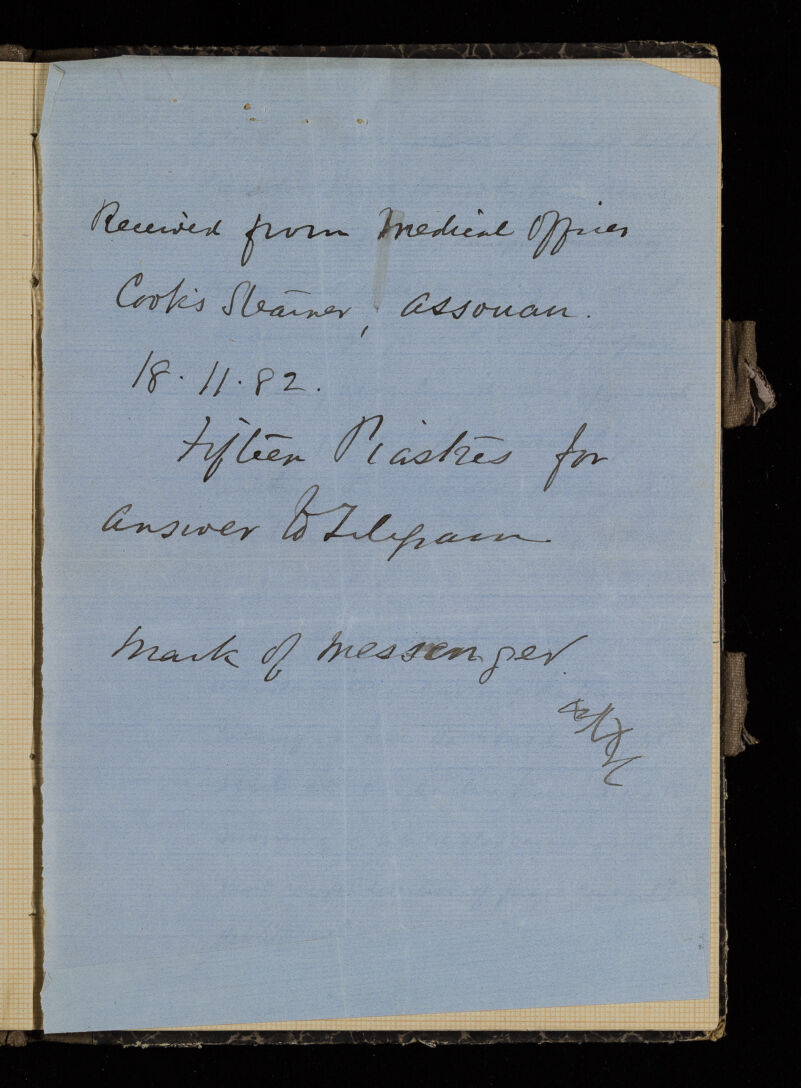 Received from Medical Officer
Cook's Steamer, Assouan.
18.11.82.
Fifteen Piastres for
Answer to Telegram
Mark of Messenger.